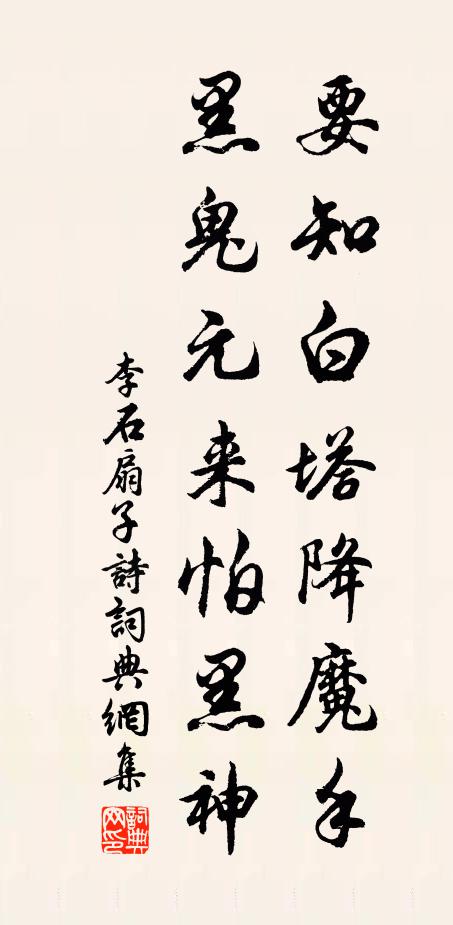 要知白塔降魔手
黑鬼元来怕黑神
李石扇子詩詞典網集
詞典網印